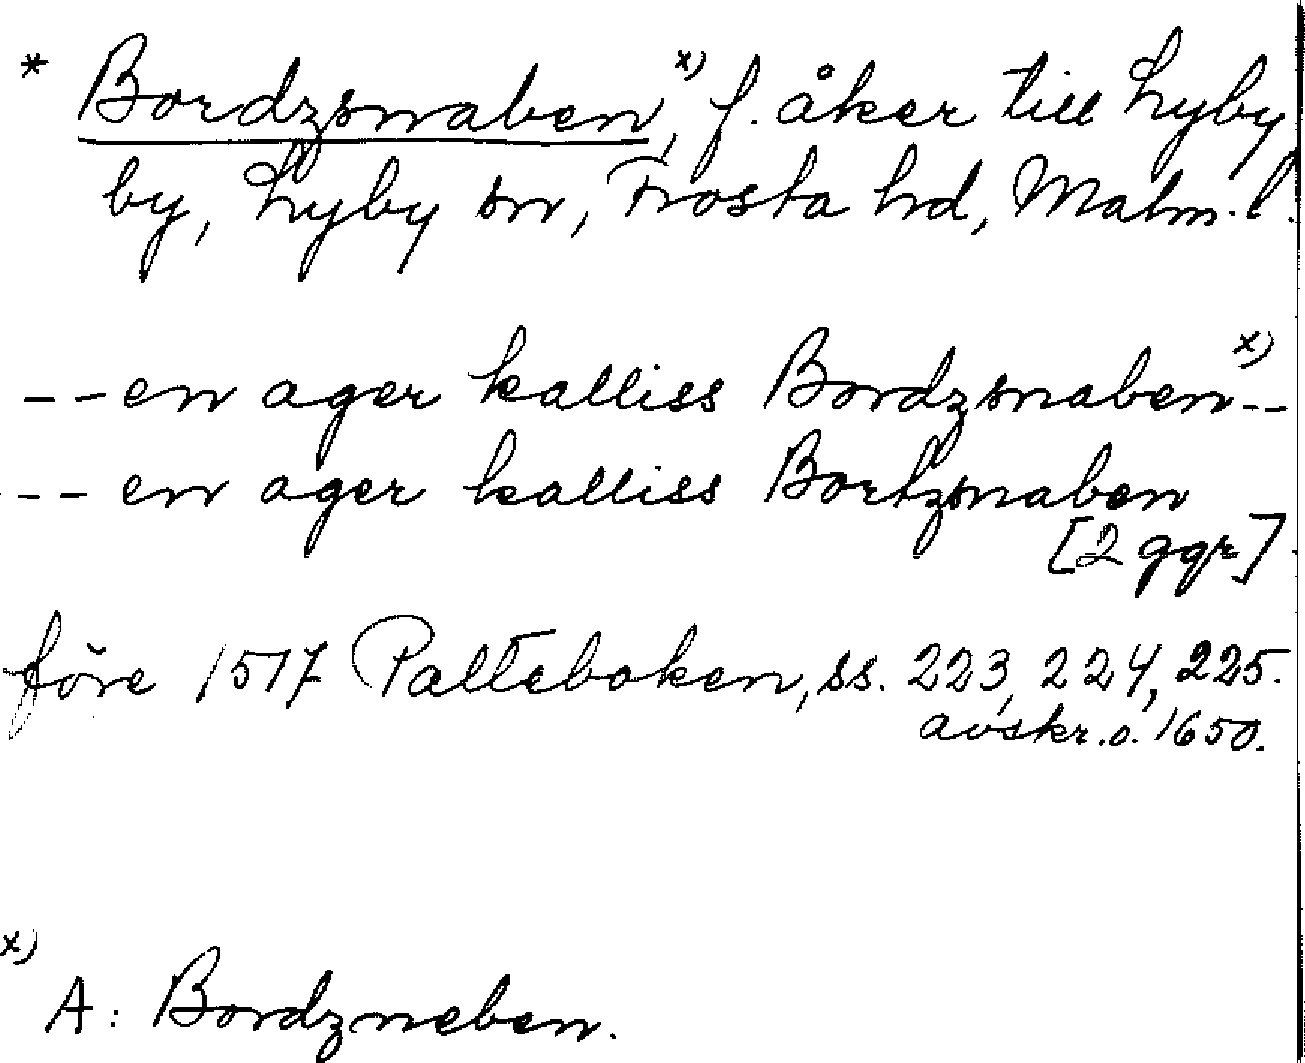 * Bordzsnaben,ˣ⁾ f. åker till Lyby
by, Lyby sn, Frosta hd, Malm. l.
--en ager kalliss Bordzsnabenˣ⁾--
--- en ager kalliss Bortzsnaben
[2 ggr]
före 1517 Palteboken, ss. 223, 224, 225.
avskr. o. 1650.
x)
A: Bordzneben.